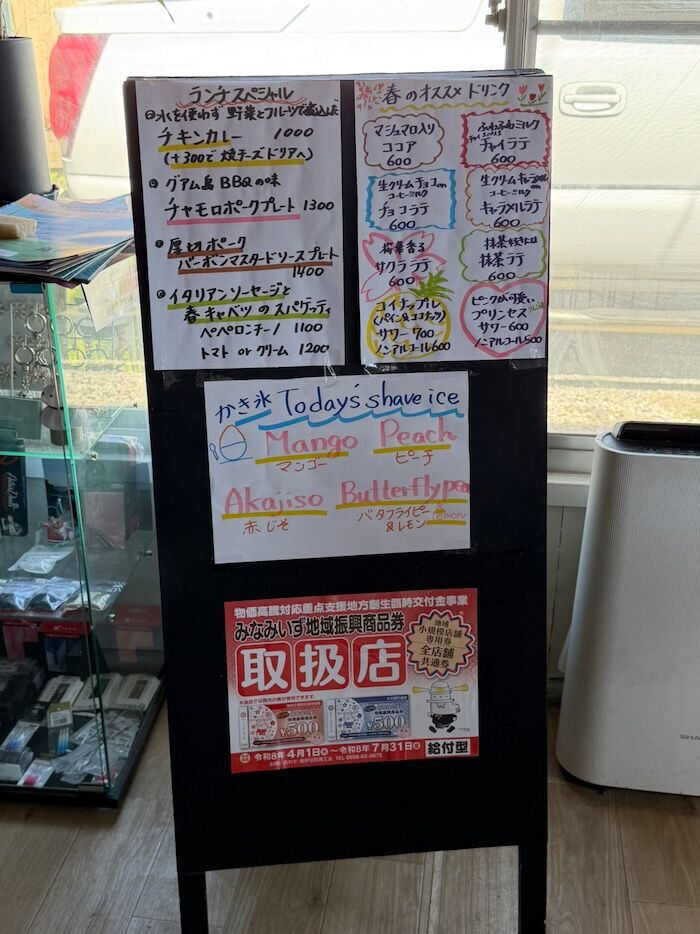 ランチスペシャル
水を使わず 野菜とフルーツで煮込んだ
チキンカレー 1000
(+300で 焼チーズドリアへ)
グアム島 BBQの味
チャモロポークプレート 1300
厚切ポーク
バーボンマスタードソースプレート
1400
イタリアンソーセージと
春キャベツのスパゲッティ
ペペロンチーノ 1100
トマト or クリーム 1200
春のオススメドリンク
マシュマロ入り
ココア
600
ふわふわミルク
チャイラテ
600
生クリームチョコon
コーヒーミルク
チョコラテ
600
生クリームキャラメルon
コーヒーミルク
キャラメルラテ
600
桜葉香る
サクララテ
600
抹茶好きには
抹茶ラテ
600
コイナップル
(パイン&ココナッツ)
サワー 700
ノンアルコール600
ピンクが可愛い
プリンセス
サワー 600
ノンアルコール500
かき氷 Today's shave ice
Mango Peach
マンゴー ピーチ
Akajiso Butterflypea
赤じそ バタフライピー
&レモン lemon
物価高騰対応重点支援地方創生臨時交付金事業
みなみいず地域振興商品券
取扱店
地域
小規模店舗
専用券
全店舗
共通券
※当店では両方の券が使用できます。
¥500
¥500
令和8年4月1日㊌~令和8年7月31日㊎
給付型
お問い合わせ 南伊豆町商工会 TEL 0558-62-0675
SHA